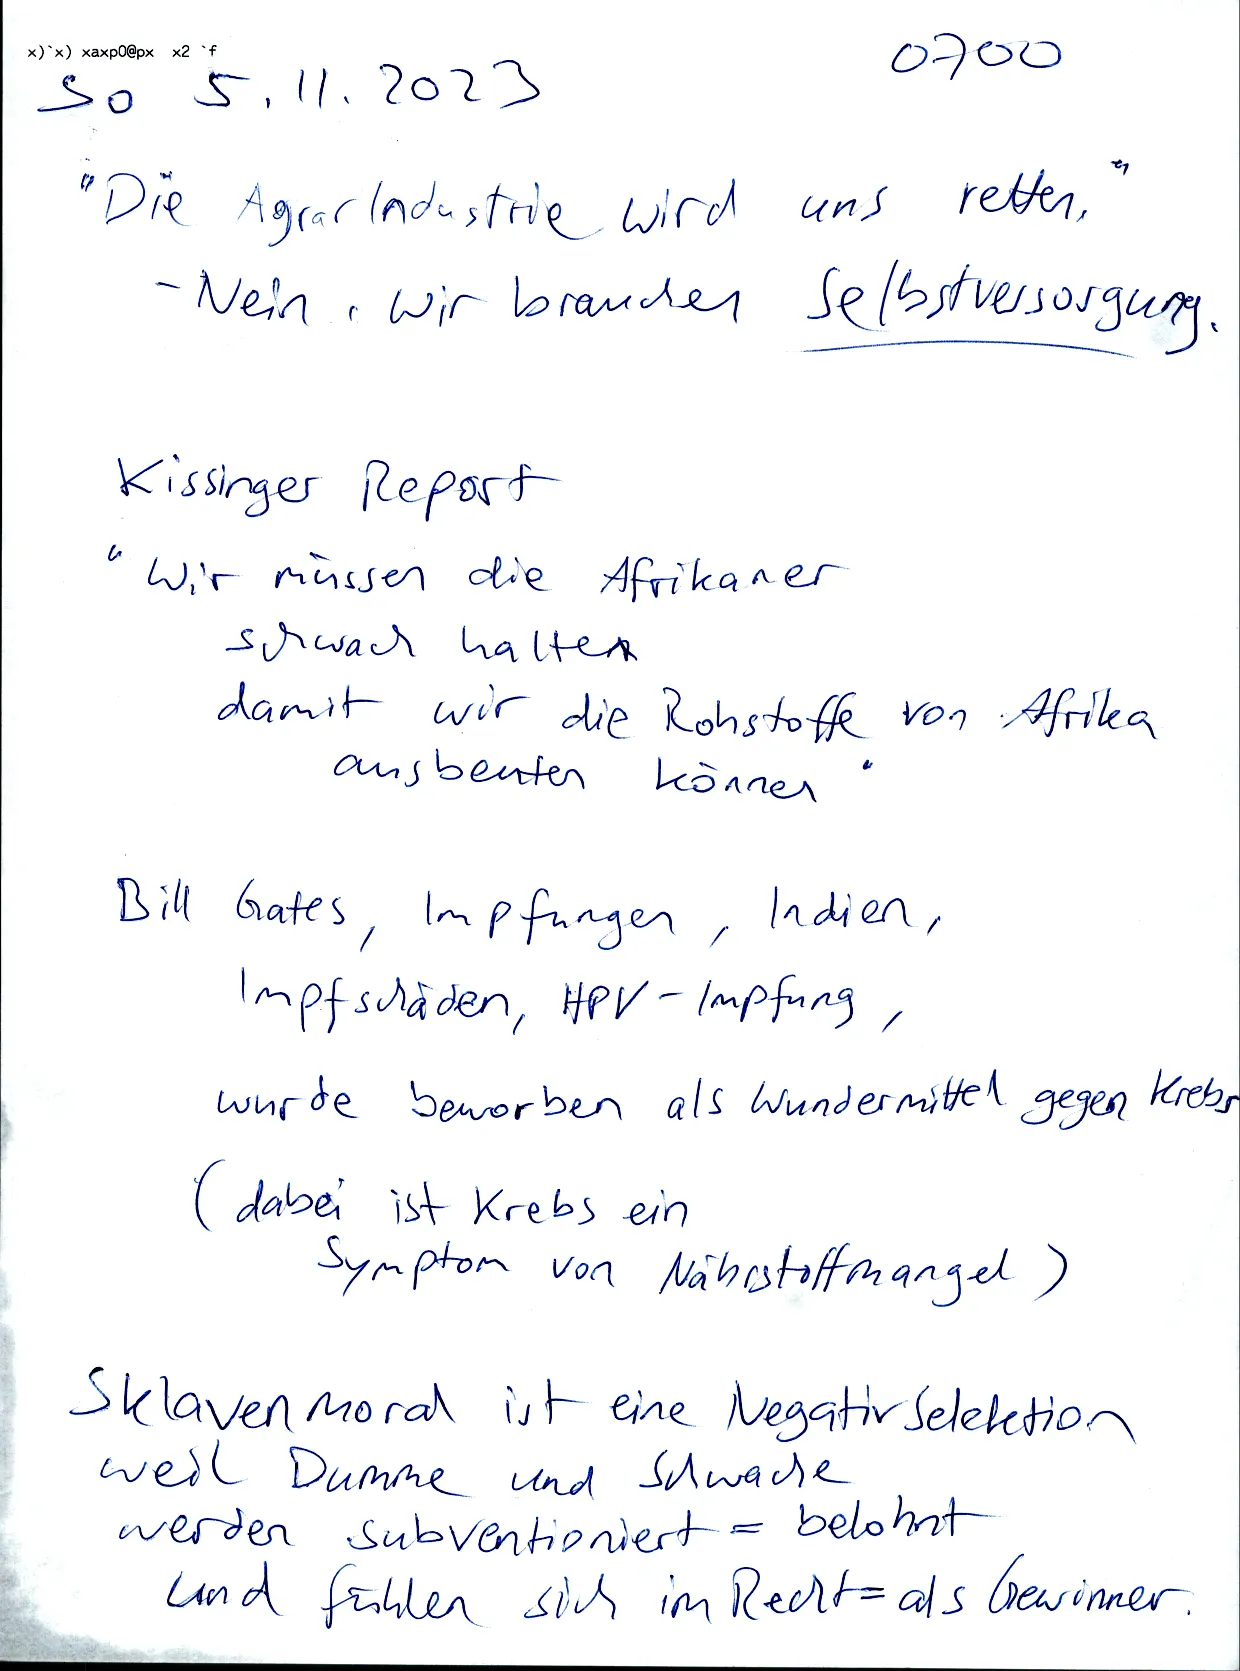 x)`x) xaxp0@px x2 `f
0700
So 5.11.2023
"Die AgrarIndustrie wird uns retten."
- Nein, wir brauchen Selbstversorgung.
Kissinger Report
"Wir müssen die Afrikaner
schwach halten
damit wir die Rohstoffe von Afrika
ausbeuten können"
Bill Gates, Impfungen, Indien,
Impfschäden, HPV-Impfung,
wurde beworben als Wundermittel gegen Krebs
(dabei ist Krebs ein
Symptom von Nährstoffmangel)
Sklavenmoral ist eine NegativSelektion
weil Dumme und Schwache
werden subventioniert = belohnt
und fühlen sich im Recht = als Gewinner.